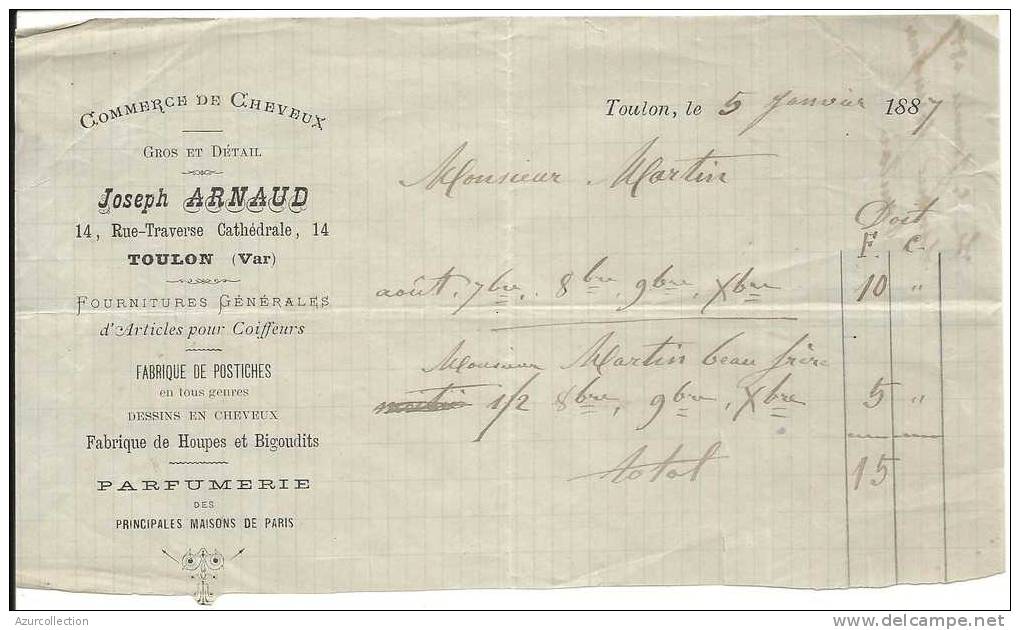 COMMERCE DE CHEVEUX
GROS ET DÉTAIL
Joseph ARNAUD
14, Rue-Traverse Cathédrale, 14
TOULON (Var)
FOURNITURES GÉNÉRALES
d'Articles pour Coiffeurs
FABRIQUE DE POSTICHES
en tous genres
DESSINS EN CHEVEUX
Fabrique de Houpes et Bigoudits
PARFUMERIE
DES
PRINCIPALES MAISONS DE PARIS
Toulon, le 5 Janvier 1887
Monsieur Martin
Doit
F. C.
août, 7bre, 8bre, 9bre, Xbre 10 "
Monsieur Martin beau frère
1/2 8bre, 9bre, Xbre 5 "
total 15
Azurcollection
www.delcampe.net